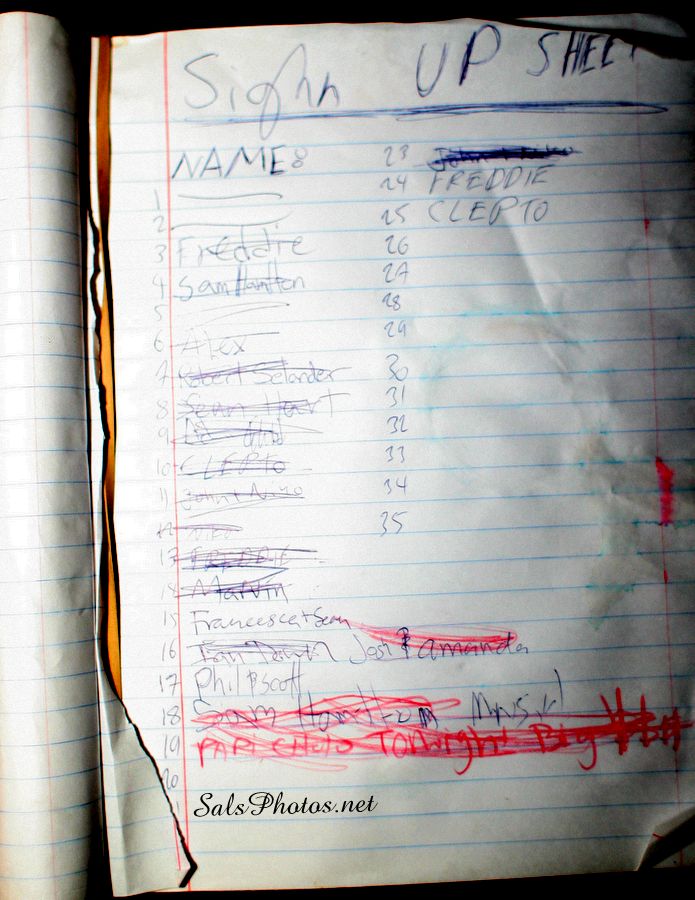 Sighn UP SHEET
NAME:
1
2
3 Freddie
4 Sam Hamilton
5
6 Alex
7 Robert Selander
8 Sean Hart
9
10 CLEPTO
11 John + Nino
12
13 FREDDIE
14 Marvin
15 Francesca + Sean
16 Josh & amanda
17 Phil & scott
18 Sam Hamilton
19 Tonight Big
20
23
24 FREDDIE
25 CLEPTO
26
27
28
29
30
31
32
33
34
35
SalsPhotos.net